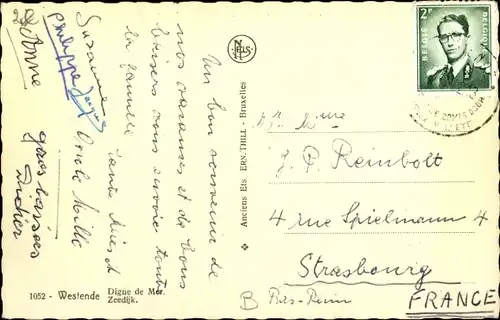 Un bon souvenir de
nos vacances et de bons
baisers vous envoie toute
la famille
Suzanne
Philippe
Anne
Oncle Mille
gros baisers
Didier
1052 - Westende Digue de Mer.
Zeedijk.
NELS
✱ Anciens Ets ERN. THILL - Bruxelles
2F
BELGIE BELGIQUE
J. P. Reinbolt
4 rue Spielmann 4
Strasbourg
Bas-Rhin
FRANCE
B